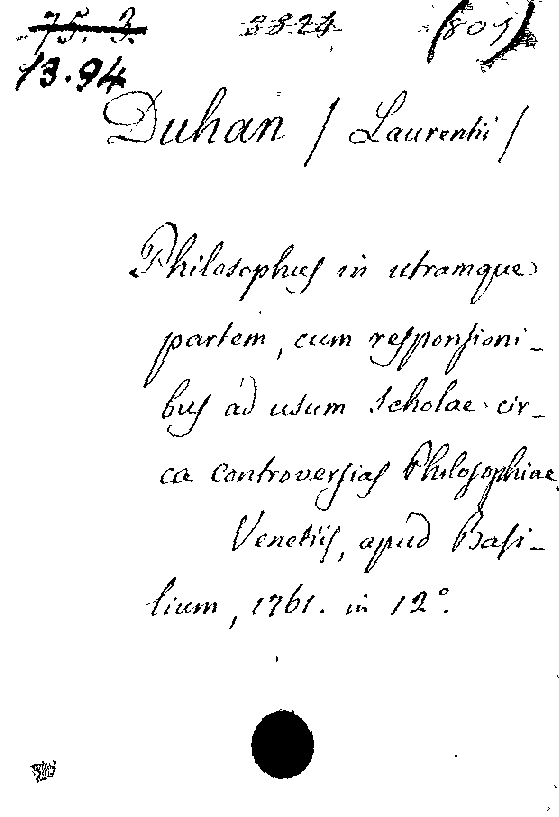 75. 3. 3324 (805)
13.94
Duhan / Laurentii /
Philosophus in utramque
partem, cum responsioni-
bus ad usum scholae cir-
ca controversias Philosophiae
Venetiis, apud Basi-
lium, 1761. in 12°.